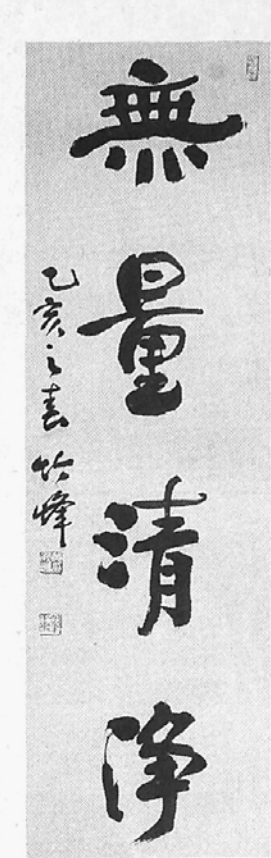 無量清淨
乙亥之春 竹峰